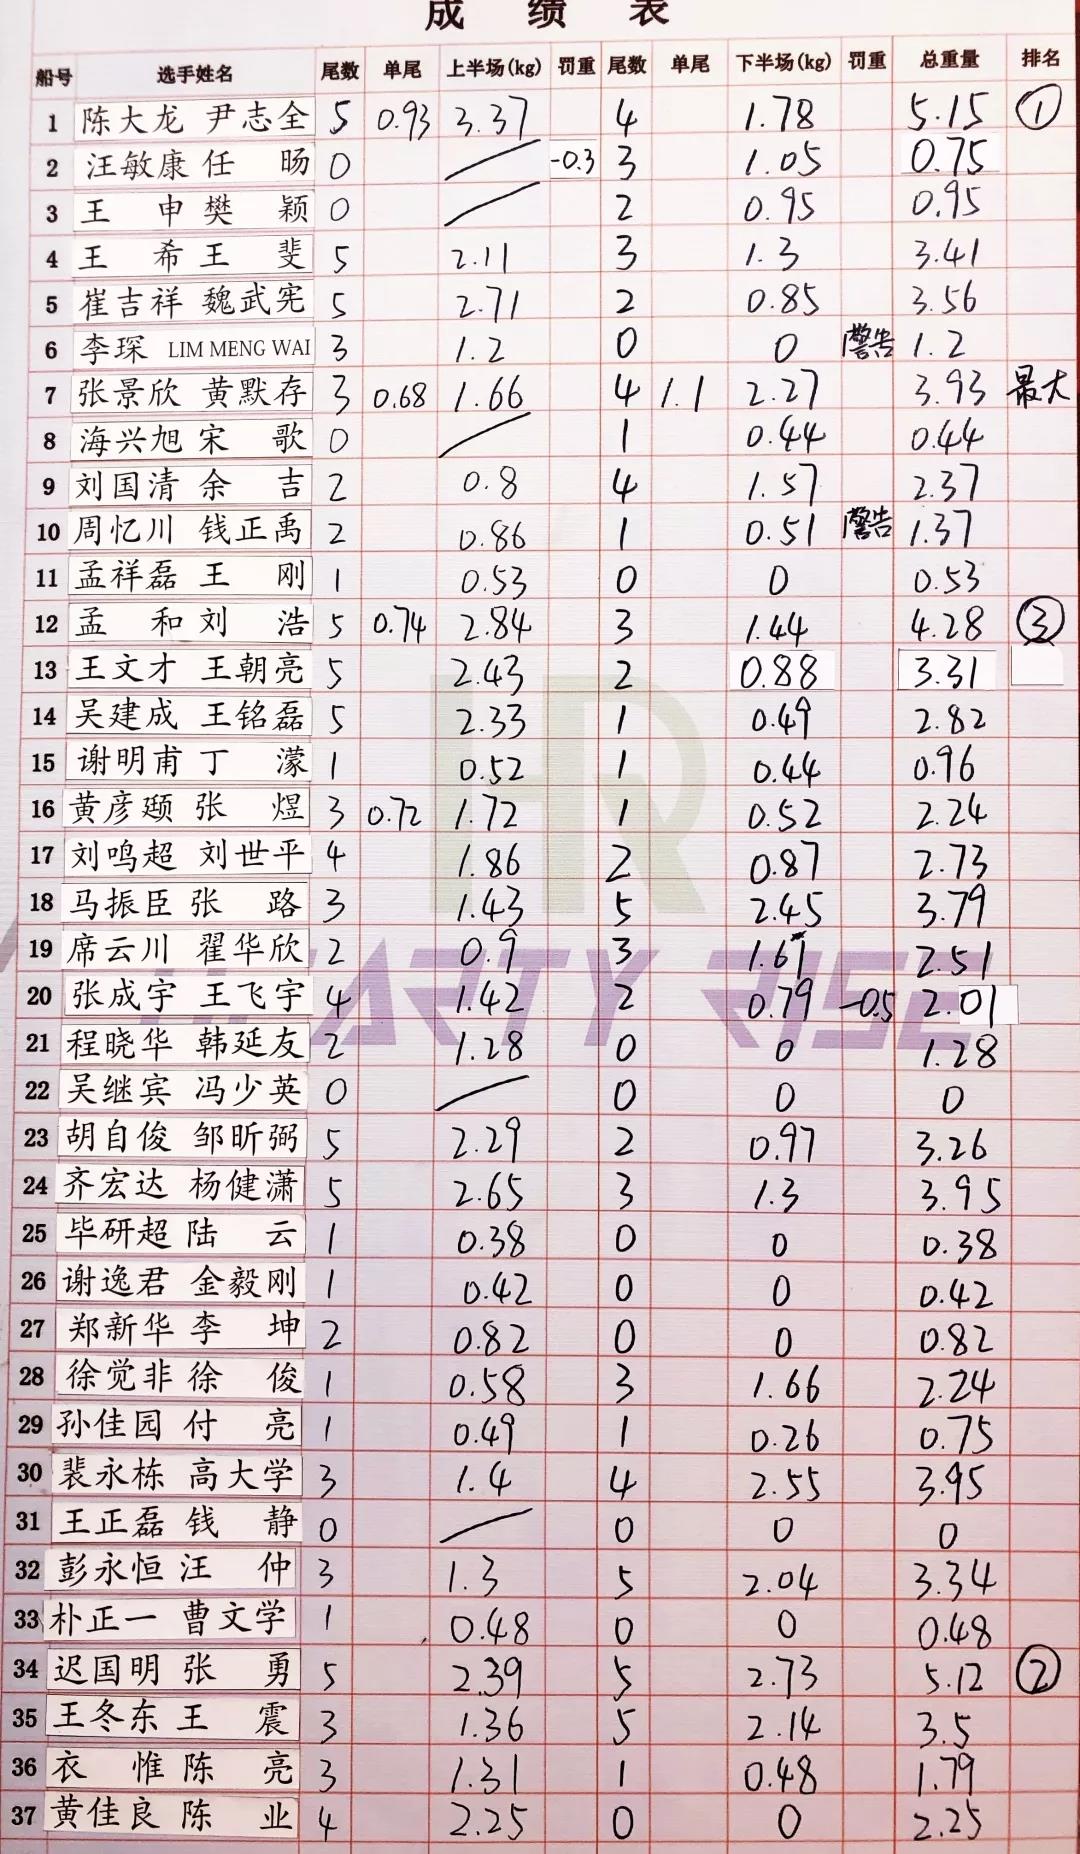 成 绩 表
船号 选手姓名 尾数 单尾 上半场(kg) 罚重 尾数 单尾 下半场(kg) 罚重 总重量 排名
1 陈大龙 尹志全 5 0.93 3.37 4 1.78 5.15 ①
2 汪敏康 任 旸 0 -0.3 3 1.05 0.75
3 王 申 樊 颖 0 2 0.95 0.95
4 王 希 王 斐 5 2.11 3 1.3 3.41
5 崔吉祥 魏武宪 5 2.71 2 0.85 3.56
6 李琛 LIM MENG WAI 3 1.2 0 0 警告 1.2
7 张景欣 黄默存 3 0.68 1.66 4 1.1 2.27 3.93 最大
8 海兴旭 宋 歌 0 1 0.44 0.44
9 刘国清 余 吉 2 0.8 4 1.57 2.37
10 周忆川 钱正禹 2 0.86 1 0.51 警告 1.37
11 孟祥磊 王 刚 1 0.53 0 0 0.53
12 孟 和 刘 浩 5 0.74 2.84 3 1.44 4.28 ③
13 王文才 王朝亮 5 2.43 2 0.88 3.31
14 吴建成 王铭磊 5 2.33 1 0.49 2.82
15 谢明甫 丁 濛 1 0.52 1 0.44 0.96
16 黄彦颋 张 煜 3 0.72 1.72 1 0.52 2.24
17 刘鸣超 刘世平 4 1.86 2 0.87 2.73
18 马振臣 张 路 3 1.43 5 2.45 3.79
19 席云川 翟华欣 2 0.9 3 1.61 2.51
20 张成宇 王飞宇 4 1.42 2 0.79 -0.5 2.01
21 程晓华 韩延友 2 1.28 0 0 1.28
22 吴继宾 冯少英 0 0 0 0
23 胡自俊 邹昕弼 5 2.29 2 0.97 3.26
24 齐宏达 杨健潇 5 2.65 3 1.3 3.95
25 毕研超 陆 云 1 0.38 0 0 0.38
26 谢逸君 金毅刚 1 0.42 0 0 0.42
27 郑新华 李 坤 2 0.82 0 0 0.82
28 徐觉非 徐 俊 1 0.58 3 1.66 2.24
29 孙佳园 付 亮 1 0.49 1 0.26 0.75
30 裴永栋 高大学 3 1.4 4 2.55 3.95
31 王正磊 钱 静 0 0 0 0
32 彭永恒 汪 仲 3 1.3 5 2.04 3.34
33 朴正一 曹文学 1 0.48 0 0 0.48
34 迟国明 张 勇 5 2.39 5 2.73 5.12 ②
35 王冬东 王 震 3 1.36 5 2.14 3.5
36 衣 惟 陈 亮 3 1.31 1 0.48 1.79
37 黄佳良 陈 业 4 2.25 0 0 2.25
HR
HEARTY RISE